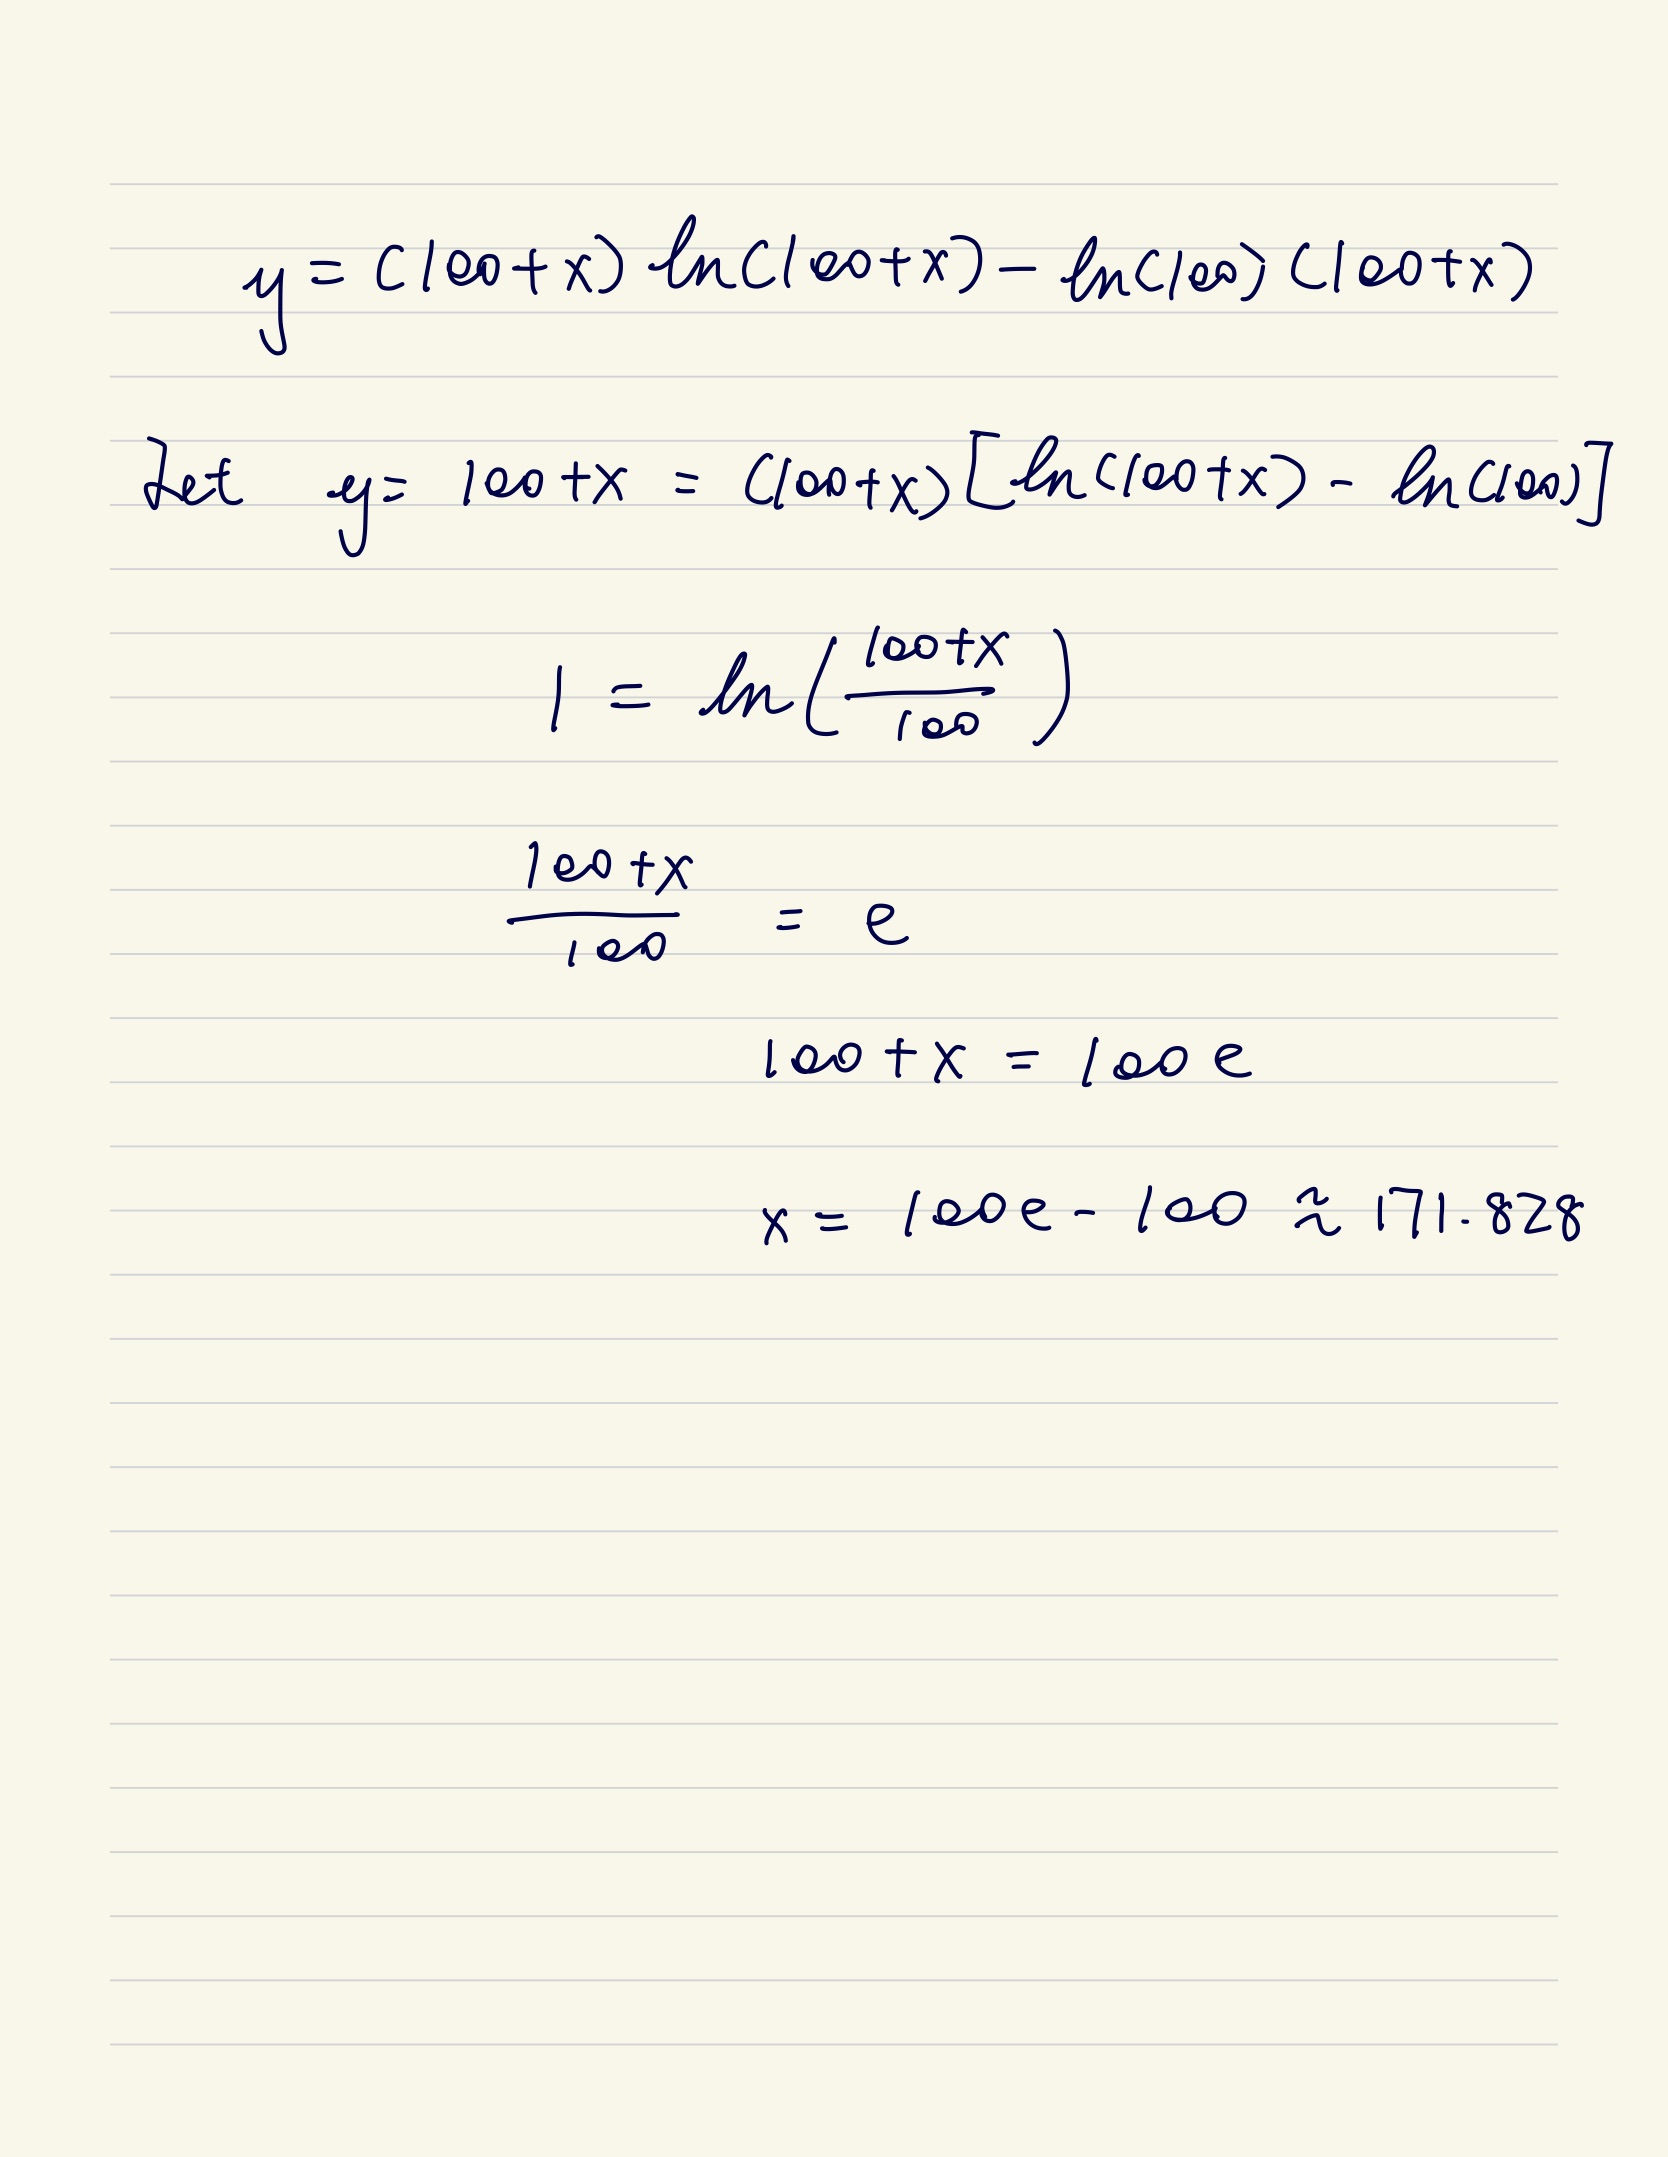 y = (100+x) ln(100+x) - ln(100) (100+x)
Let y = 100+x = (100+x) [ln(100+x) - ln(100)]
1 = ln((100+x)/100)
(100+x)/100 = e
100+x = 100e
x = 100e - 100 ≈ 171.828